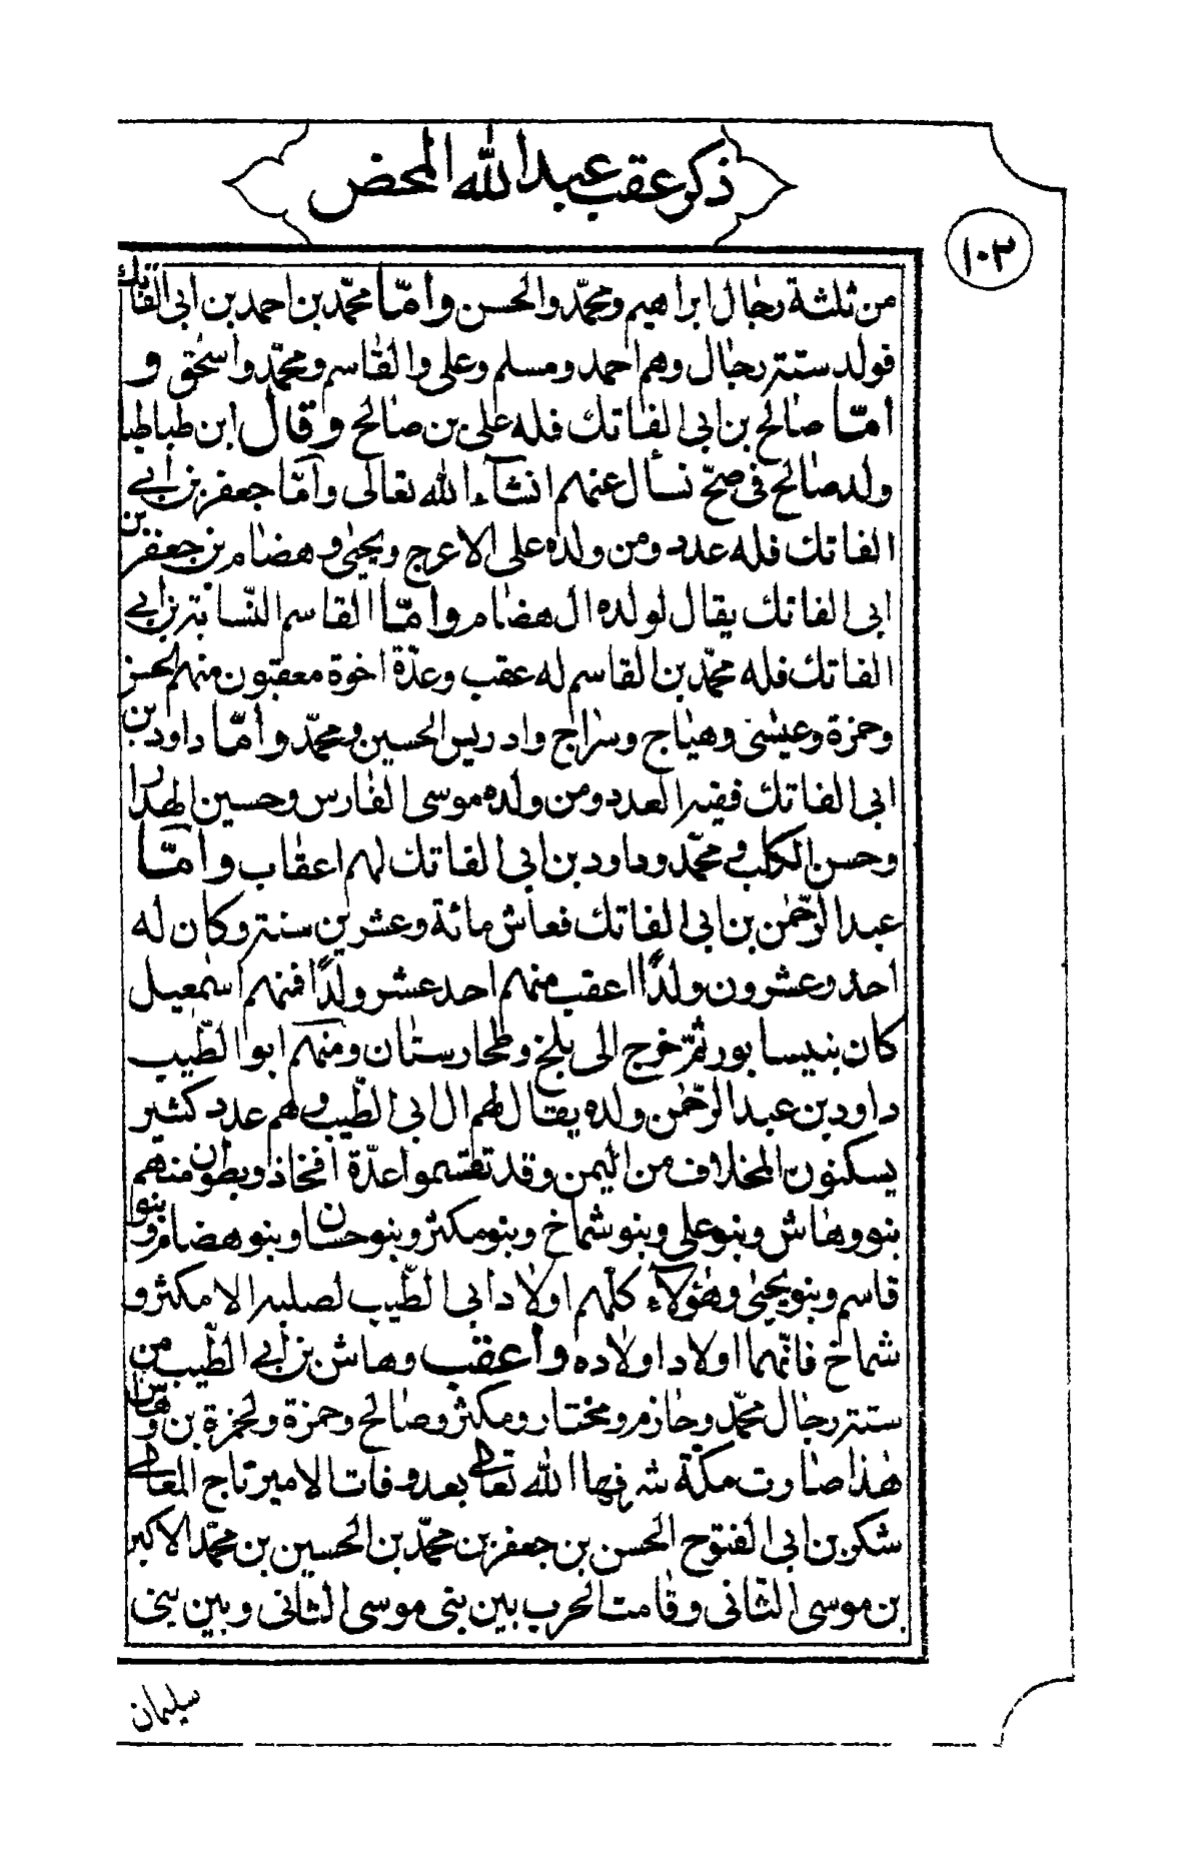 ذكر عقب عبد الله المحض
١٠٣
من ثلثة رجال ابراهيم ومحمّد والحسن وأمّا محمّد بن احمد بن ابى الفاتك
فولد ستة رجال وهم احمد ومسلم وعلى والقاسم ومحمّد واسحٰق و
أمّا صالح بن ابى الفاتك فله على بن صالح وقال ابن طباطبا
ولد صالح فى صحّ نسأل عنهم انشآء الله تعالى وأمّا جعفر بن ابى
الفاتك فله عدد ومن ولده على الاعرج ويحيى وهضام بن جعفر بن
ابى الفاتك يقال لولده ال هضام وامّا القاسم النّسابة بن ابى
الفاتك فله محمّد بن القاسم له عقب وعدّة اخوة معقبون منهم الحسن
وحمزة وعيسٰى وهياج وسراج وادريس الحسين ومحمّد وأمّا داود بن
ابى الفاتك ففيه العدد ومن ولده موسى الفارس وحسين الهدار
وحسن الكلب ومحمّد وداود بن ابى الفاتك لهم اعقاب وأمّا
عبد الرّحمٰن بن ابى الفاتك فعاش مائة وعشرين سنة وكان له
احد وعشرون ولدًا اعقب منهم احد عشر ولدًا فمنهم اسمٰعيل
كان بنيسابور ثمّ خرج الى بلخ وطخارستان ومنهم ابو الطّيب
داود بن عبد الرّحمٰن ولده يقال لهم ال ابى الطّيب وهم عدد كثير
يسكنون المخلاف من اليمن وقد تقسّموا عدّة افخاذ وبطون منهم
بنو وهاش وبنو على وبنو شماخ وبنو مكثر وبنو حسان وبنو هضام وبنو
قاسم وبنو يحيى وهٰؤلآء كلّهم اولاد أبى الطّيب لصلبه الا مكثر و
شماخ فانّهما اولاد اولاده وأعقب وهاش بن أبى الطّيب من
ستة رجال محمّد وحازم ومختار ومكثر وصالح وحمزة ولحمزة بن وهاش
هٰذا صارت مكّة شرفها الله تعالى بعد وفات الامير تاج المعالى
شكر بن ابى الفتوح الحسن بن جعفر بن محمّد بن الحسين بن محمّد الاكبر
بن موسى الثّانى وقامت الحرب بين بنى موسى الثانى وبين بنى
سليمان